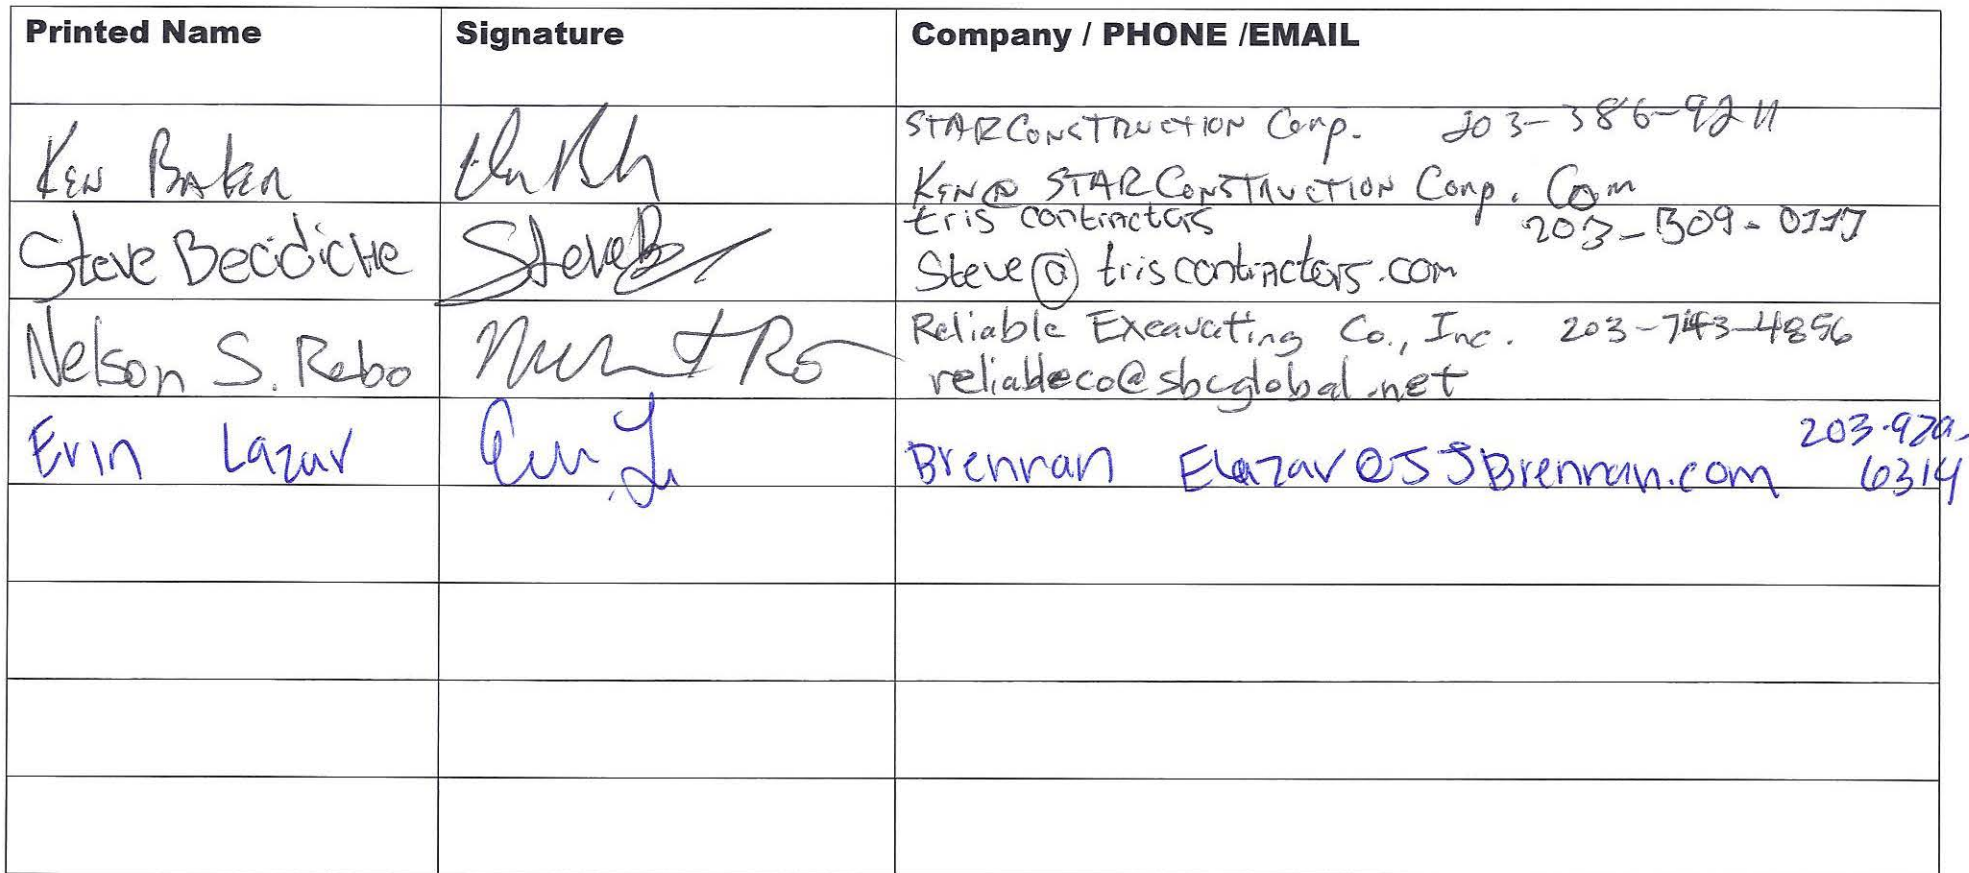 Printed Name Signature Company / PHONE /EMAIL
STAR CONSTRUCTION Corp. 203-386-9211
Ken Baker
KEN@ STAR CONSTRUCTION Corp. Com
tris contractors 203-509-0117
Steve SteveB
Steve@triscontractors.com
Nelson S. Rebo Reliable Excavating Co., Inc. 203-743-4856
reliableco@sbcglobal.net
Erin Lazar Brennan Elazar@JJBrennan.com 203-920-
6314